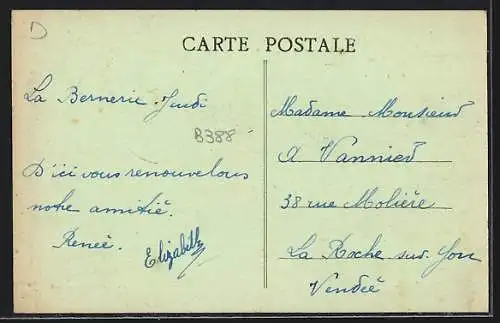 D
CARTE POSTALE
La Bernerie. Jeudi
B388
D'ici vous renouvelons
notre amitié.
Renée. Elizabeth
Madame Monsieur
A Vannier
38 rue Molière
La Roche sur Yon
Vendée